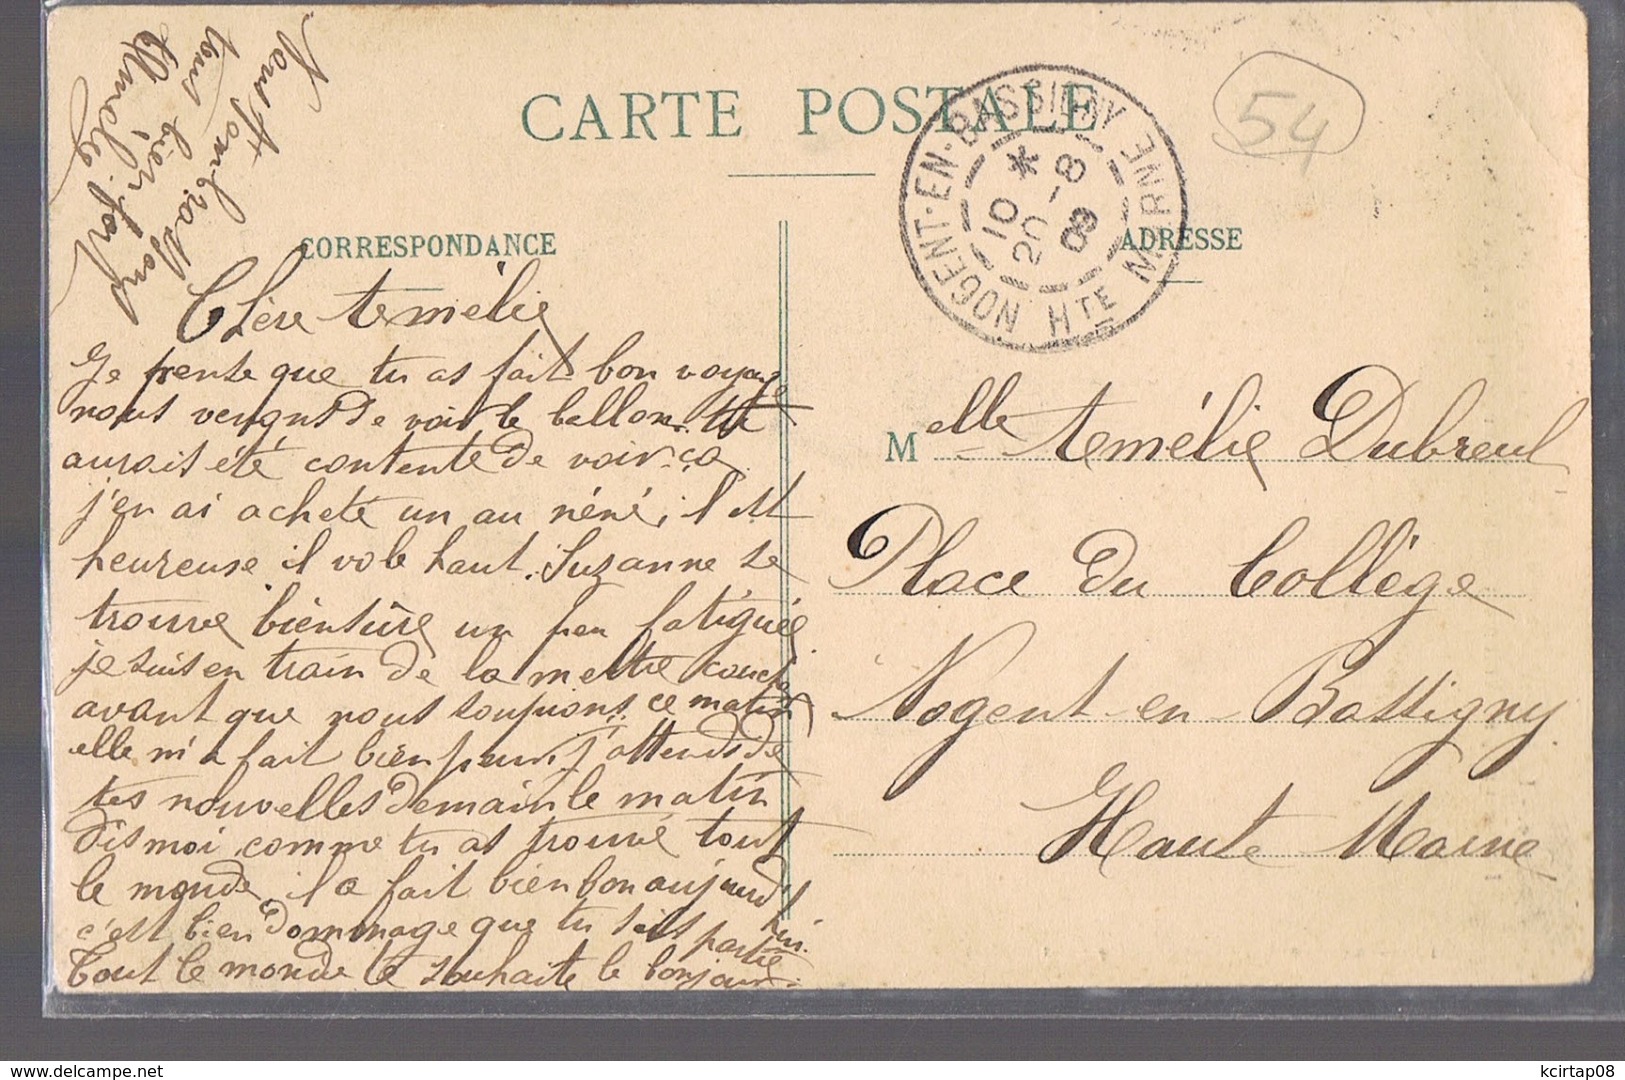 CARTE POSTALE
CORRESPONDANCE
ADRESSE
NOGENT-EN-BASSIGNY HTE MARNE
10 * 20 - 8 08
54
Nous t'embrassons
tous bien fort
Chère Amélie
Je pense que tu as fait bon voyage
nous venons de voir le ballon. tu
aurais été contente de voir ça
j'en ai acheté un au néné, il est
heureuse il vole haut. Suzanne se
trouve bien sûre un peu fatiguée
je suis en train de la mettre coucher
avant que nous soupions. ce matin
elle m'a fait bien peur j'attends de
tes nouvelles demain le matin
dis moi comme tu as trouvé tout
le monde il a fait bien bon aujourd'hui.
c'est bien dommage que tu sois partie
Tout le monde te souhaite le bonjour.
Melle Amélie Dubreuil
Place du Collège
Nogent-en-Bassigny
Haute Marne
www.delcampe.net
kcirtap08